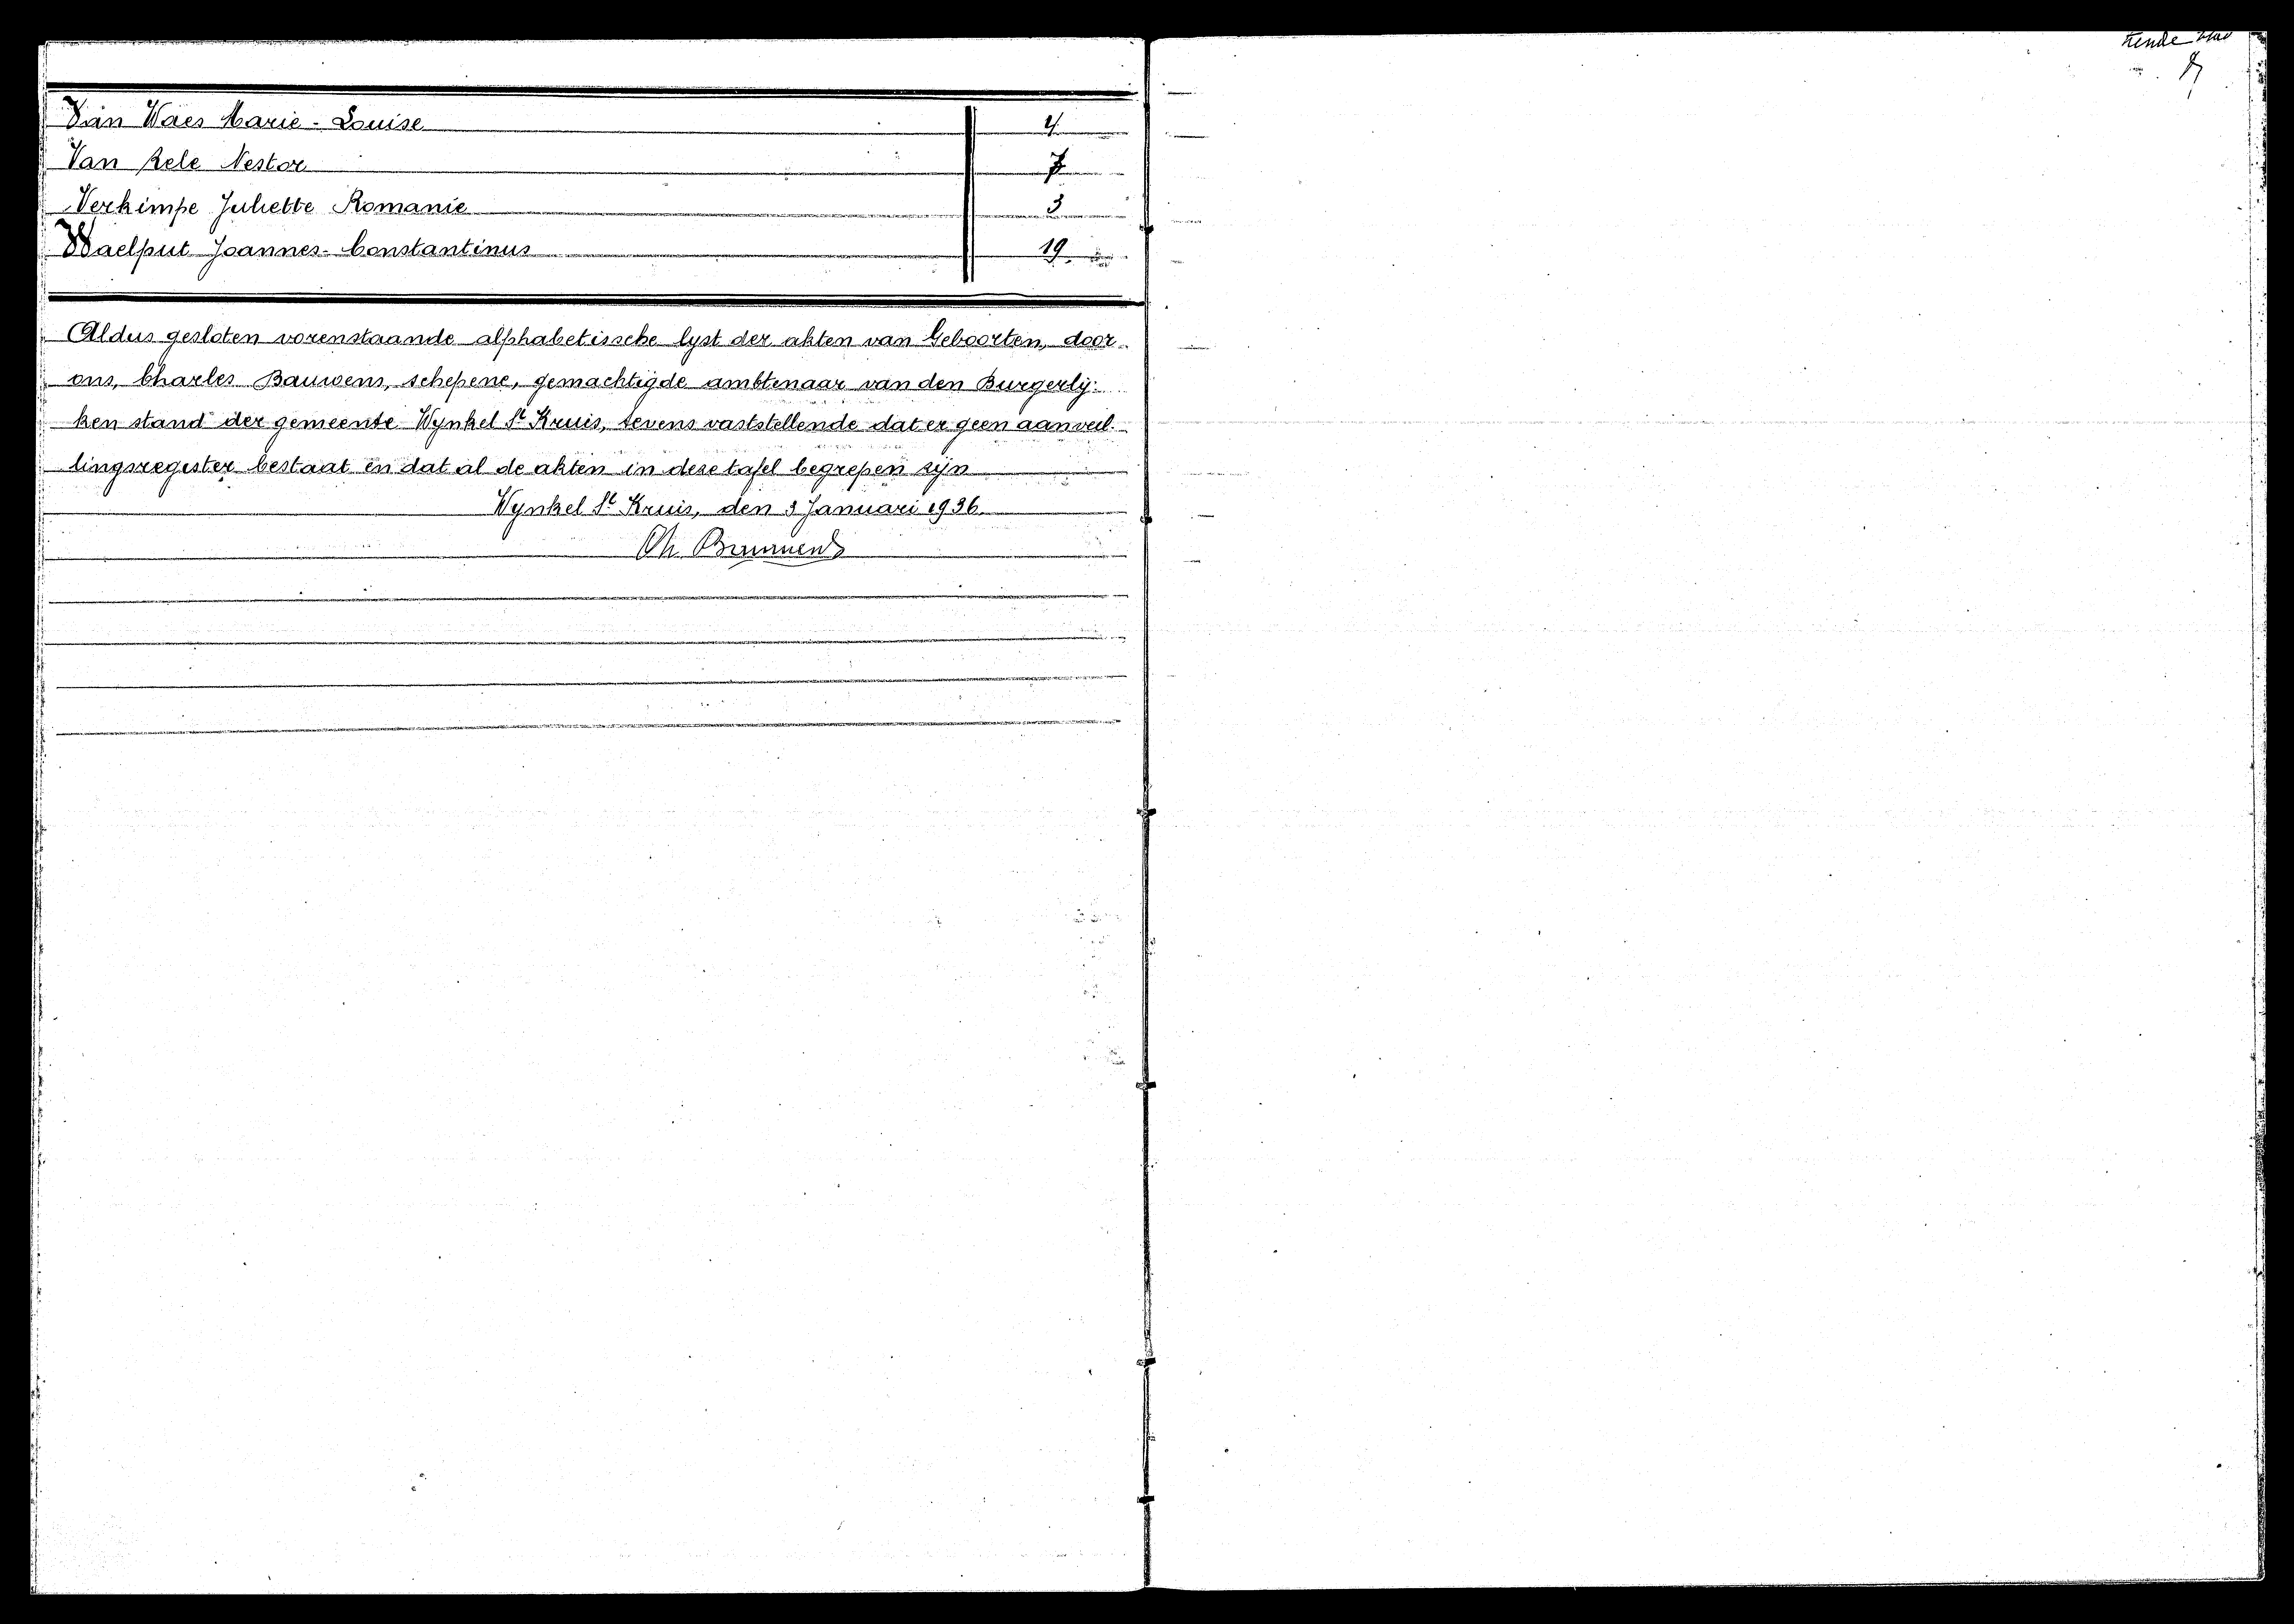 Van Waes Marie-Louise 4
Van Zele Nestor 7
Verkimpe Juliette Romanie 3
Waelput Joannes-Constantinus 19
Aldus gesloten vorenstaande alphabetische lyst der akten van Geboorten, door
ons, Charles Bauwens, schepene, gemachtigde ambtenaar van den Burgerlij-
ken stand der gemeente Wynkel St Kruis, tevens vaststellende dat er geen aanvul-
lingsregister bestaat en dat al de akten in deze tafel begrepen zijn
Wynkel St Kruis, den 3 Januari 1936.
Ch Bauwens
tiende blad